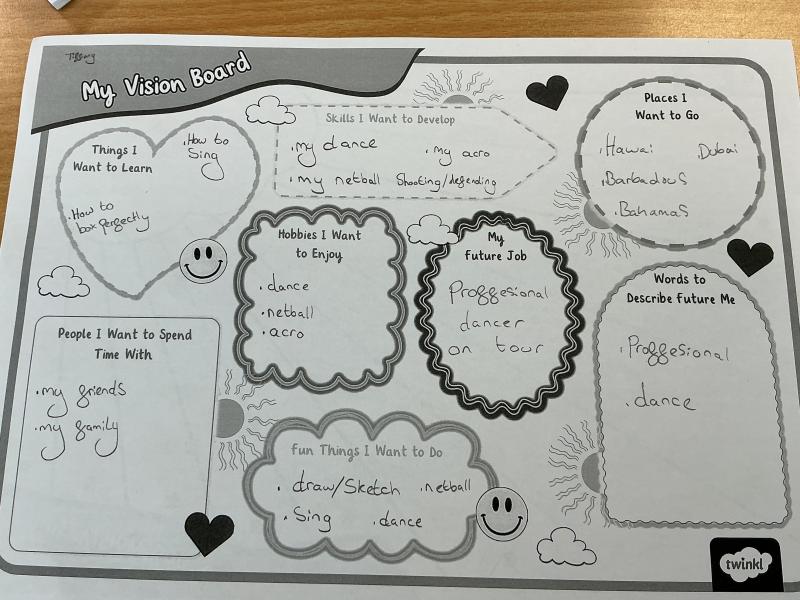 Tiffany
My Vision Board
Things I
Want to Learn
.How to
Sing
.How to
box perfectly
Skills I Want to Develop
.my dance
.my acro
.my netball Shooting/defending
Places I
Want to Go
.Hawai
.Dubai
.Barbadous
.Bahamas
Hobbies I Want
to Enjoy
.dance
.netball
.acro
My
Future Job
Proffesional
dancer
on tour
Words to
Describe Future Me
.Proffesional
.dance
People I Want to Spend
Time With
.my friends
.my family
Fun Things I Want to Do
.draw/Sketch .netball
.Sing .dance
twinkl